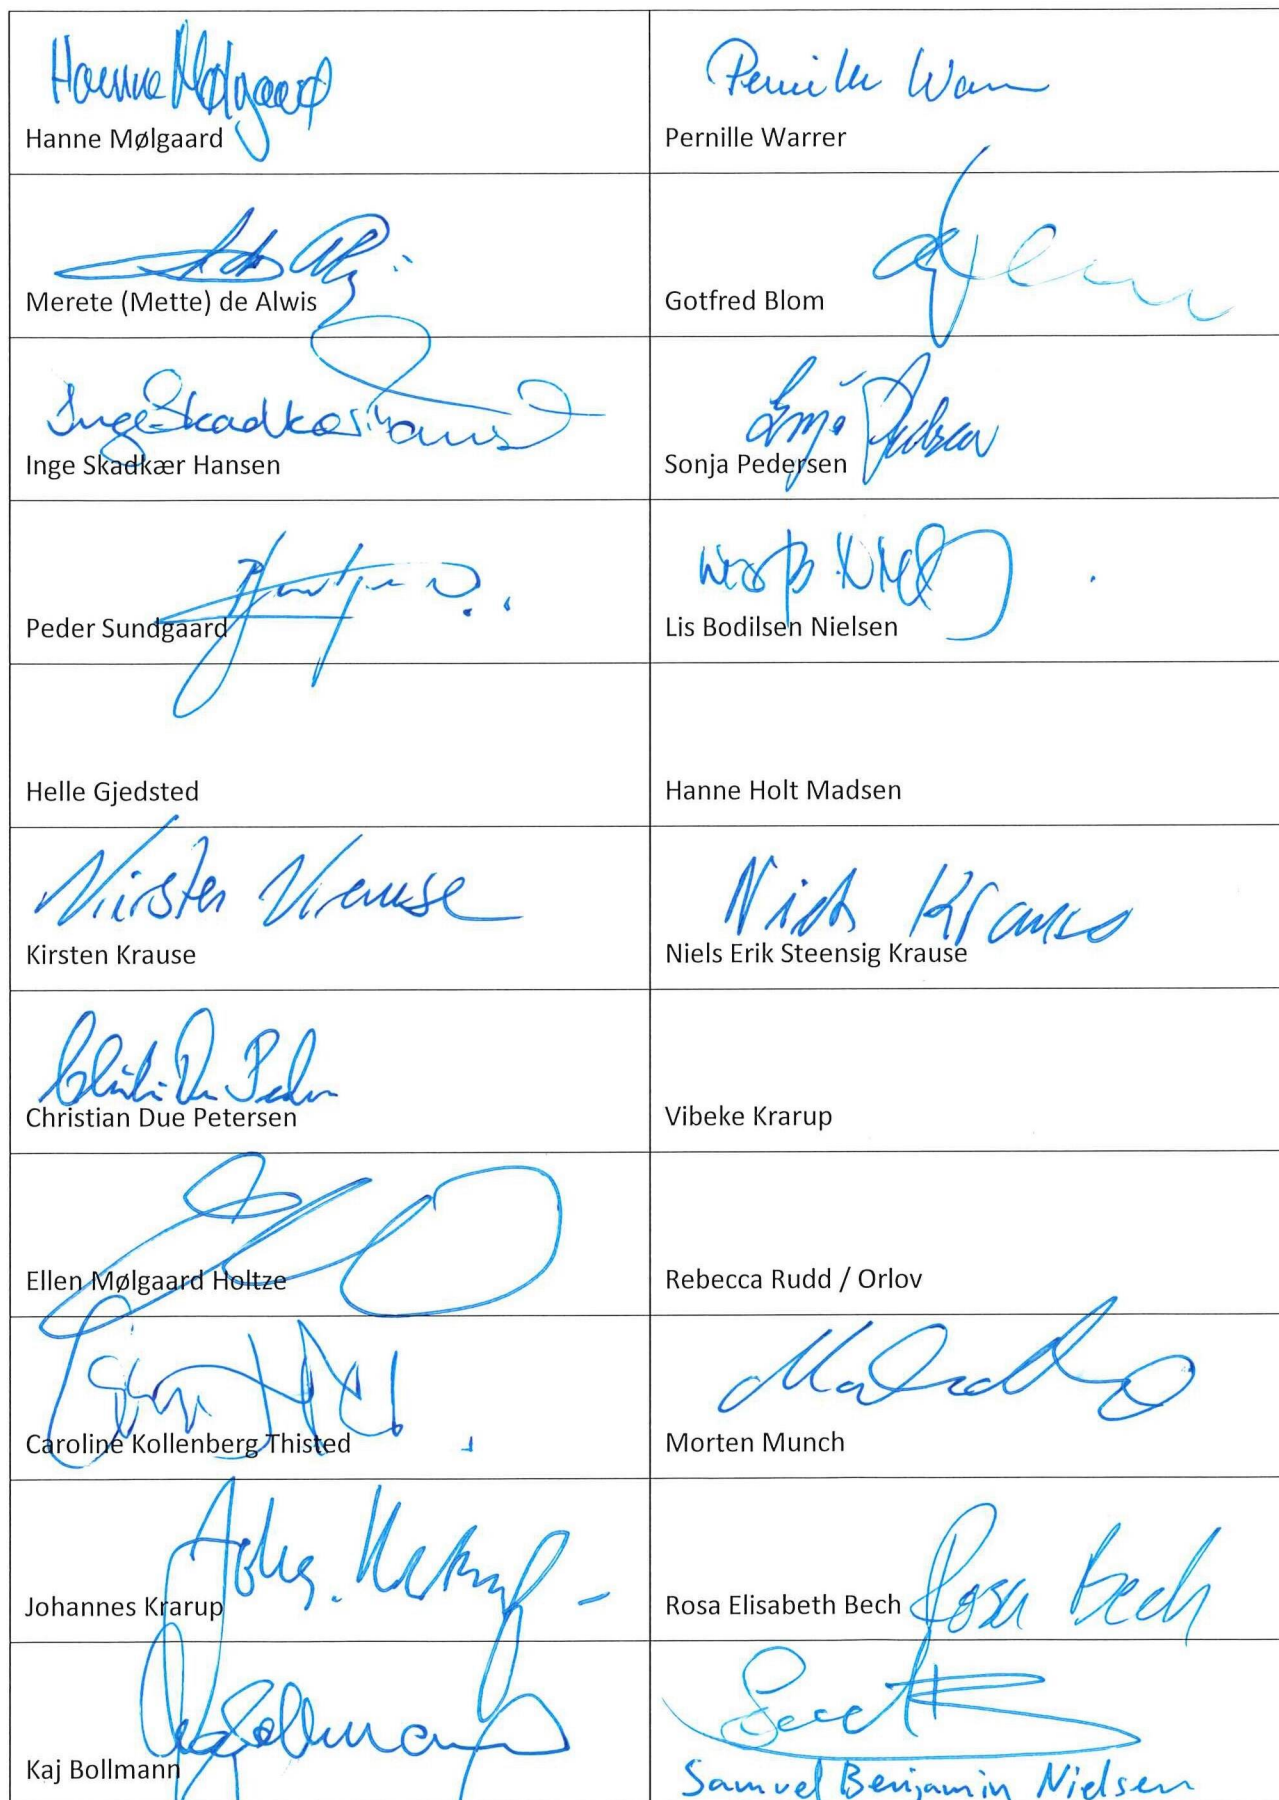 Hanne Mølgaard
Hanne Mølgaard
Pernille
Pernille Warrer
Merete (Mette) de Alwis
Gotfred Blom
Inge Skadkær Hansen
Inge Skadkær Hansen
Sonja Pedersen
Sonja Pedersen
Peder Sundgaard
Lis Bodilsen Nielsen
Helle Gjedsted
Hanne Holt Madsen
Kirsten Krause
Kirsten Krause
Niels Krause
Niels Erik Steensig Krause
Christian Due Petersen
Vibeke Krarup
Ellen Mølgaard Holtze
Rebecca Rudd / Orlov
Caroline Kollenberg Thisted
Morten Munch
Johs. Krarup
Johannes Krarup
Rosa Bech
Rosa Elisabeth Bech
Kaj Bollmann
Kaj Bollmann
Samuel Benjamin Nielsen